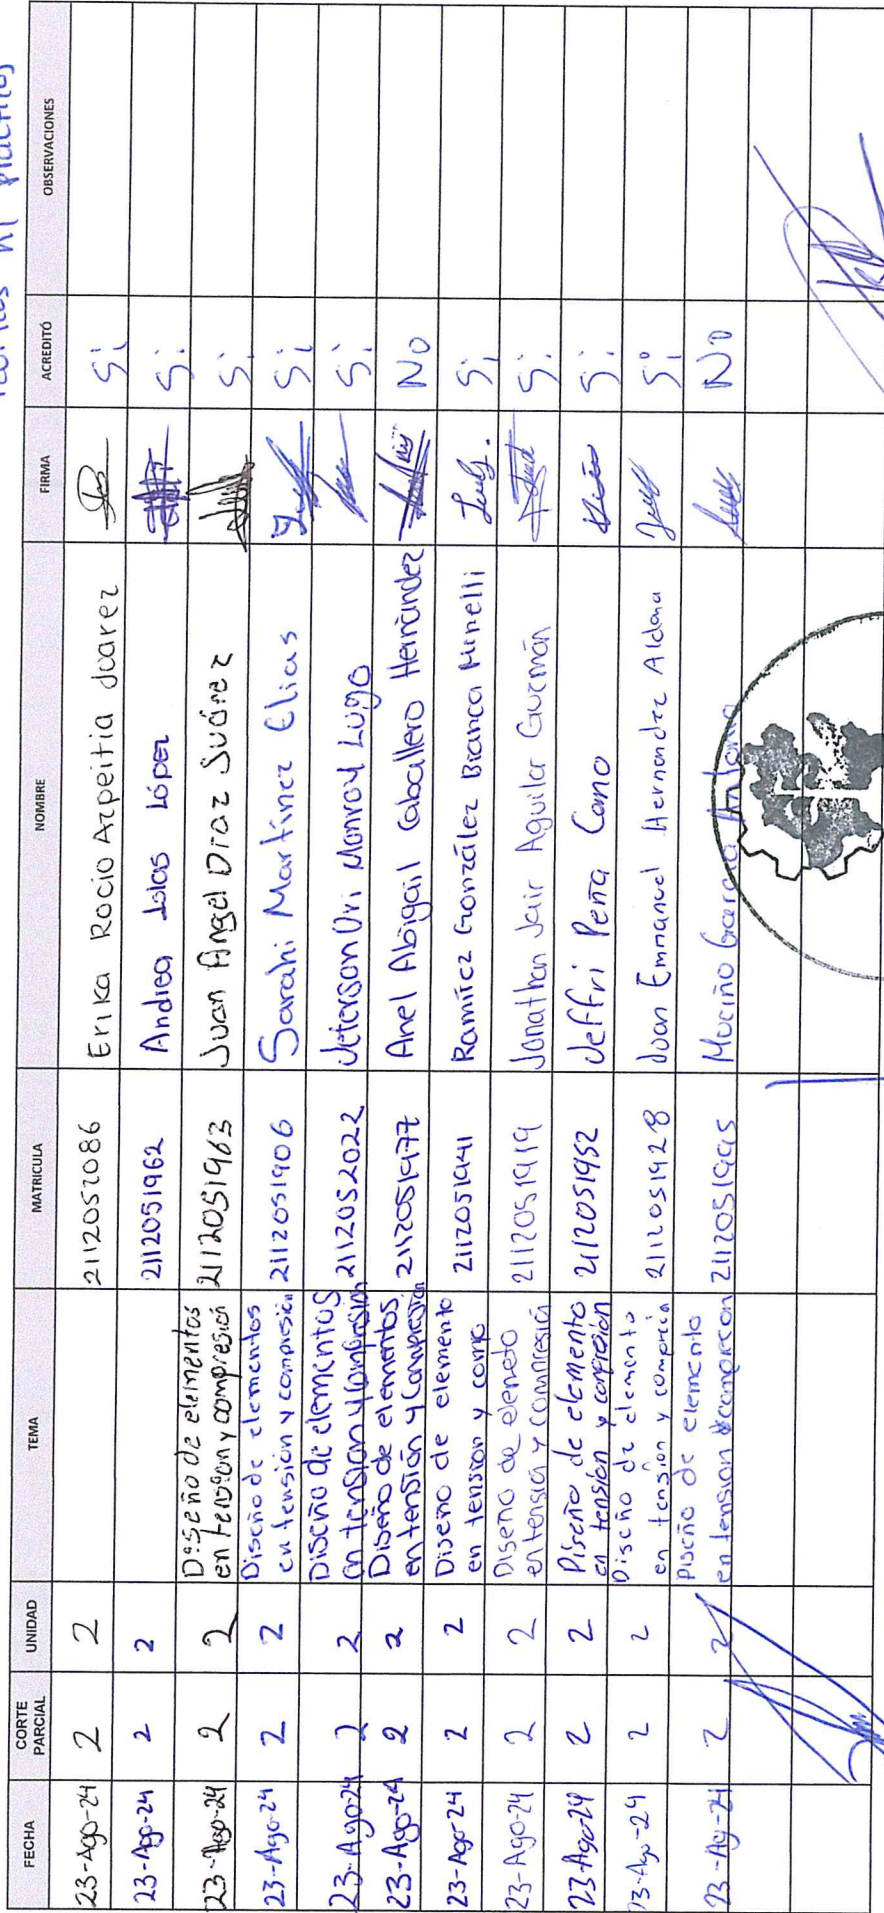 teóricos ni prácticos
FECHA CORTE PARCIAL UNIDAD TEMA MATRICULA NOMBRE FIRMA ACREDITÓ OBSERVACIONES
23-Ago-24 2 2 2112052086 Erika Rocio Azpeitia Juarez Si
23-Ago-24 2 2 2112051962 Andrea Islas López Si
23-Ago-24 2 2 Diseño de elementos
en tension y compresión 2112051963 Juan Angel Diaz Suárez Si
23-Ago-24 2 2 Diseño de elementos
en tensión y compresión 2112051906 Sarahi Martínez Elias Si
23-Ago-24 2 2 Diseño de elementos
en tension y compresion 2112052022 Jeterson Uri Monroy Lugo Si
23-Ago-24 2 2 Diseño de elementos
en tensión y compresión 2112051977 Anel Abigail Caballero Hernández No
23-Ago-24 2 2 Diseño de elemento
en tension y comp 2112051941 Ramírez González Bianca Minelli Si
23-Ago-24 2 2 Diseño de elemeto
en tensión y compresión 2112051919 Jonathan Jair Aguilar Guzmán Si
23-Ago-24 2 2 Diseño de elemento
en tensión y compresión 2112051952 Jeffri Peña Cano Si
23-Ago-24 2 2 Diseño de elemento
en tension y compreción 2112051928 Juan Emmanuel Hernandez Aldana Si
23-Ag-24 2 2 Diseño de elemento
en tension compresion 2112051995 Muciño García Antonio No